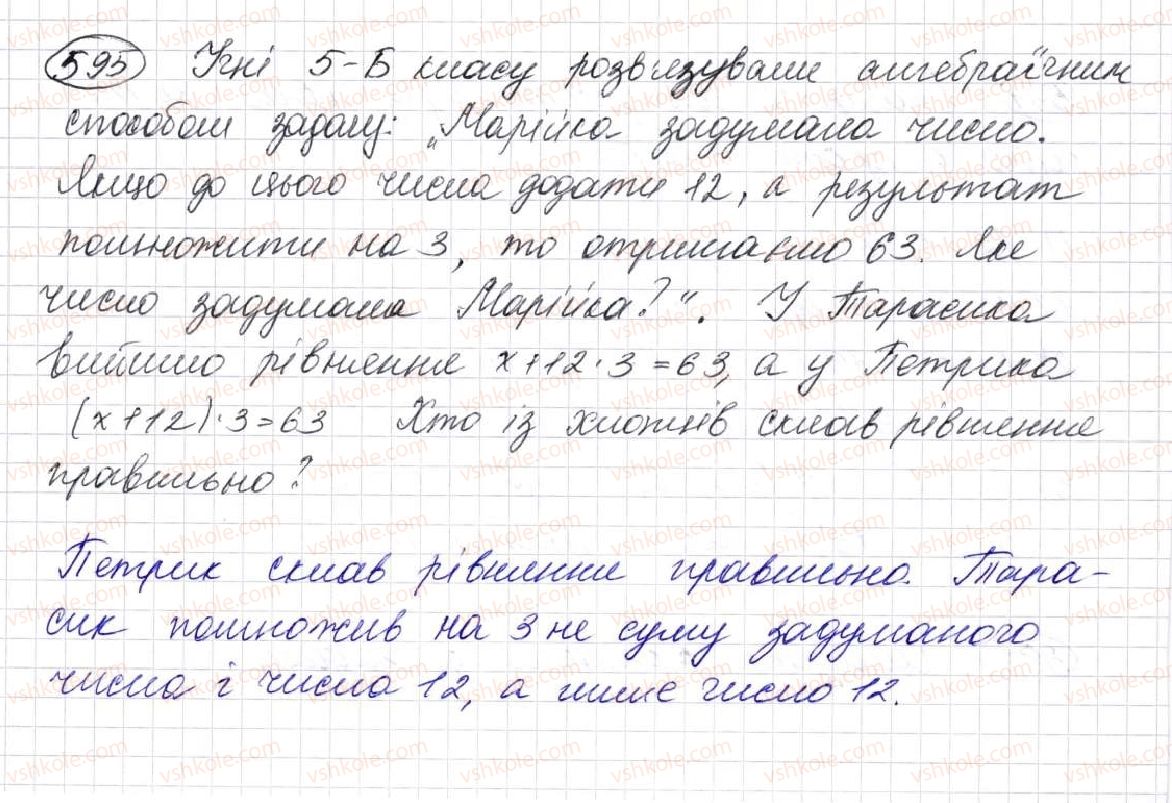 595 Учні 5-Б класу розв'язували алгебраїчним
способом задачу: „Марійка задумала число.
Якщо до цього числа додати 12, а результат
помножити на 3, то отримаємо 63. Яке
число задумала Марійка?". У Тарасика
вийшло рівняння x+12·3=63, а у Петрика
(x+12)·3=63 Хто із хлопців склав рівняння
правильно?
Петрик склав рівняння правильно. Тара-
сик помножив на 3 не суму задуманого
числа і числа 12, а лише число 12.